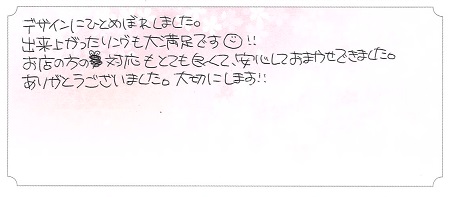 デザインにひとめぼれしました。
出来上がったリングも大満足です☺!!
お店の方の対応もとても良くて、安心しておまかせできました。
ありがとうございました。大切にします!!